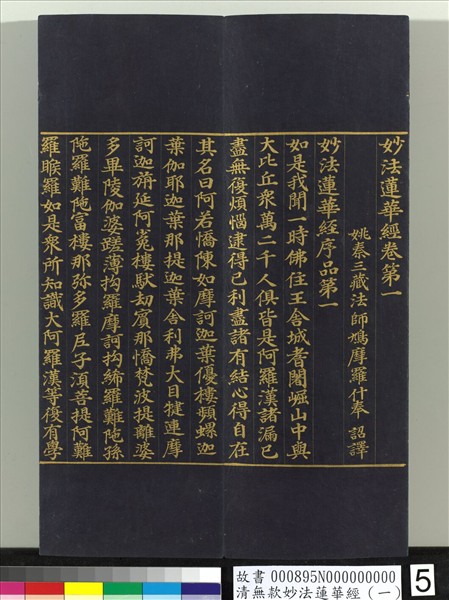 妙法蓮華經卷第一
姚秦三藏法師鳩摩羅什奉 詔譯
妙法蓮華經序品第一
如是我聞一時佛住王舍城耆闍崛山中與
大比丘衆萬二千人俱皆是阿羅漢諸漏已
盡無復煩惱逮得己利盡諸有結心得自在
其名曰阿若憍陳如摩訶迦葉優樓頻螺迦
葉伽耶迦葉那提迦葉舍利弗大目犍連摩
訶迦旃延阿㝹樓馱劫賓那憍梵波提離婆
多畢陵伽婆蹉薄拘羅摩訶拘絺羅難陁孫
陁羅難陁富樓那弥多羅尼子湏菩提阿難
羅睺羅如是衆所知識大阿羅漢等復有學
故書 000895N000000000
清無款妙法蓮華經 (一)
5